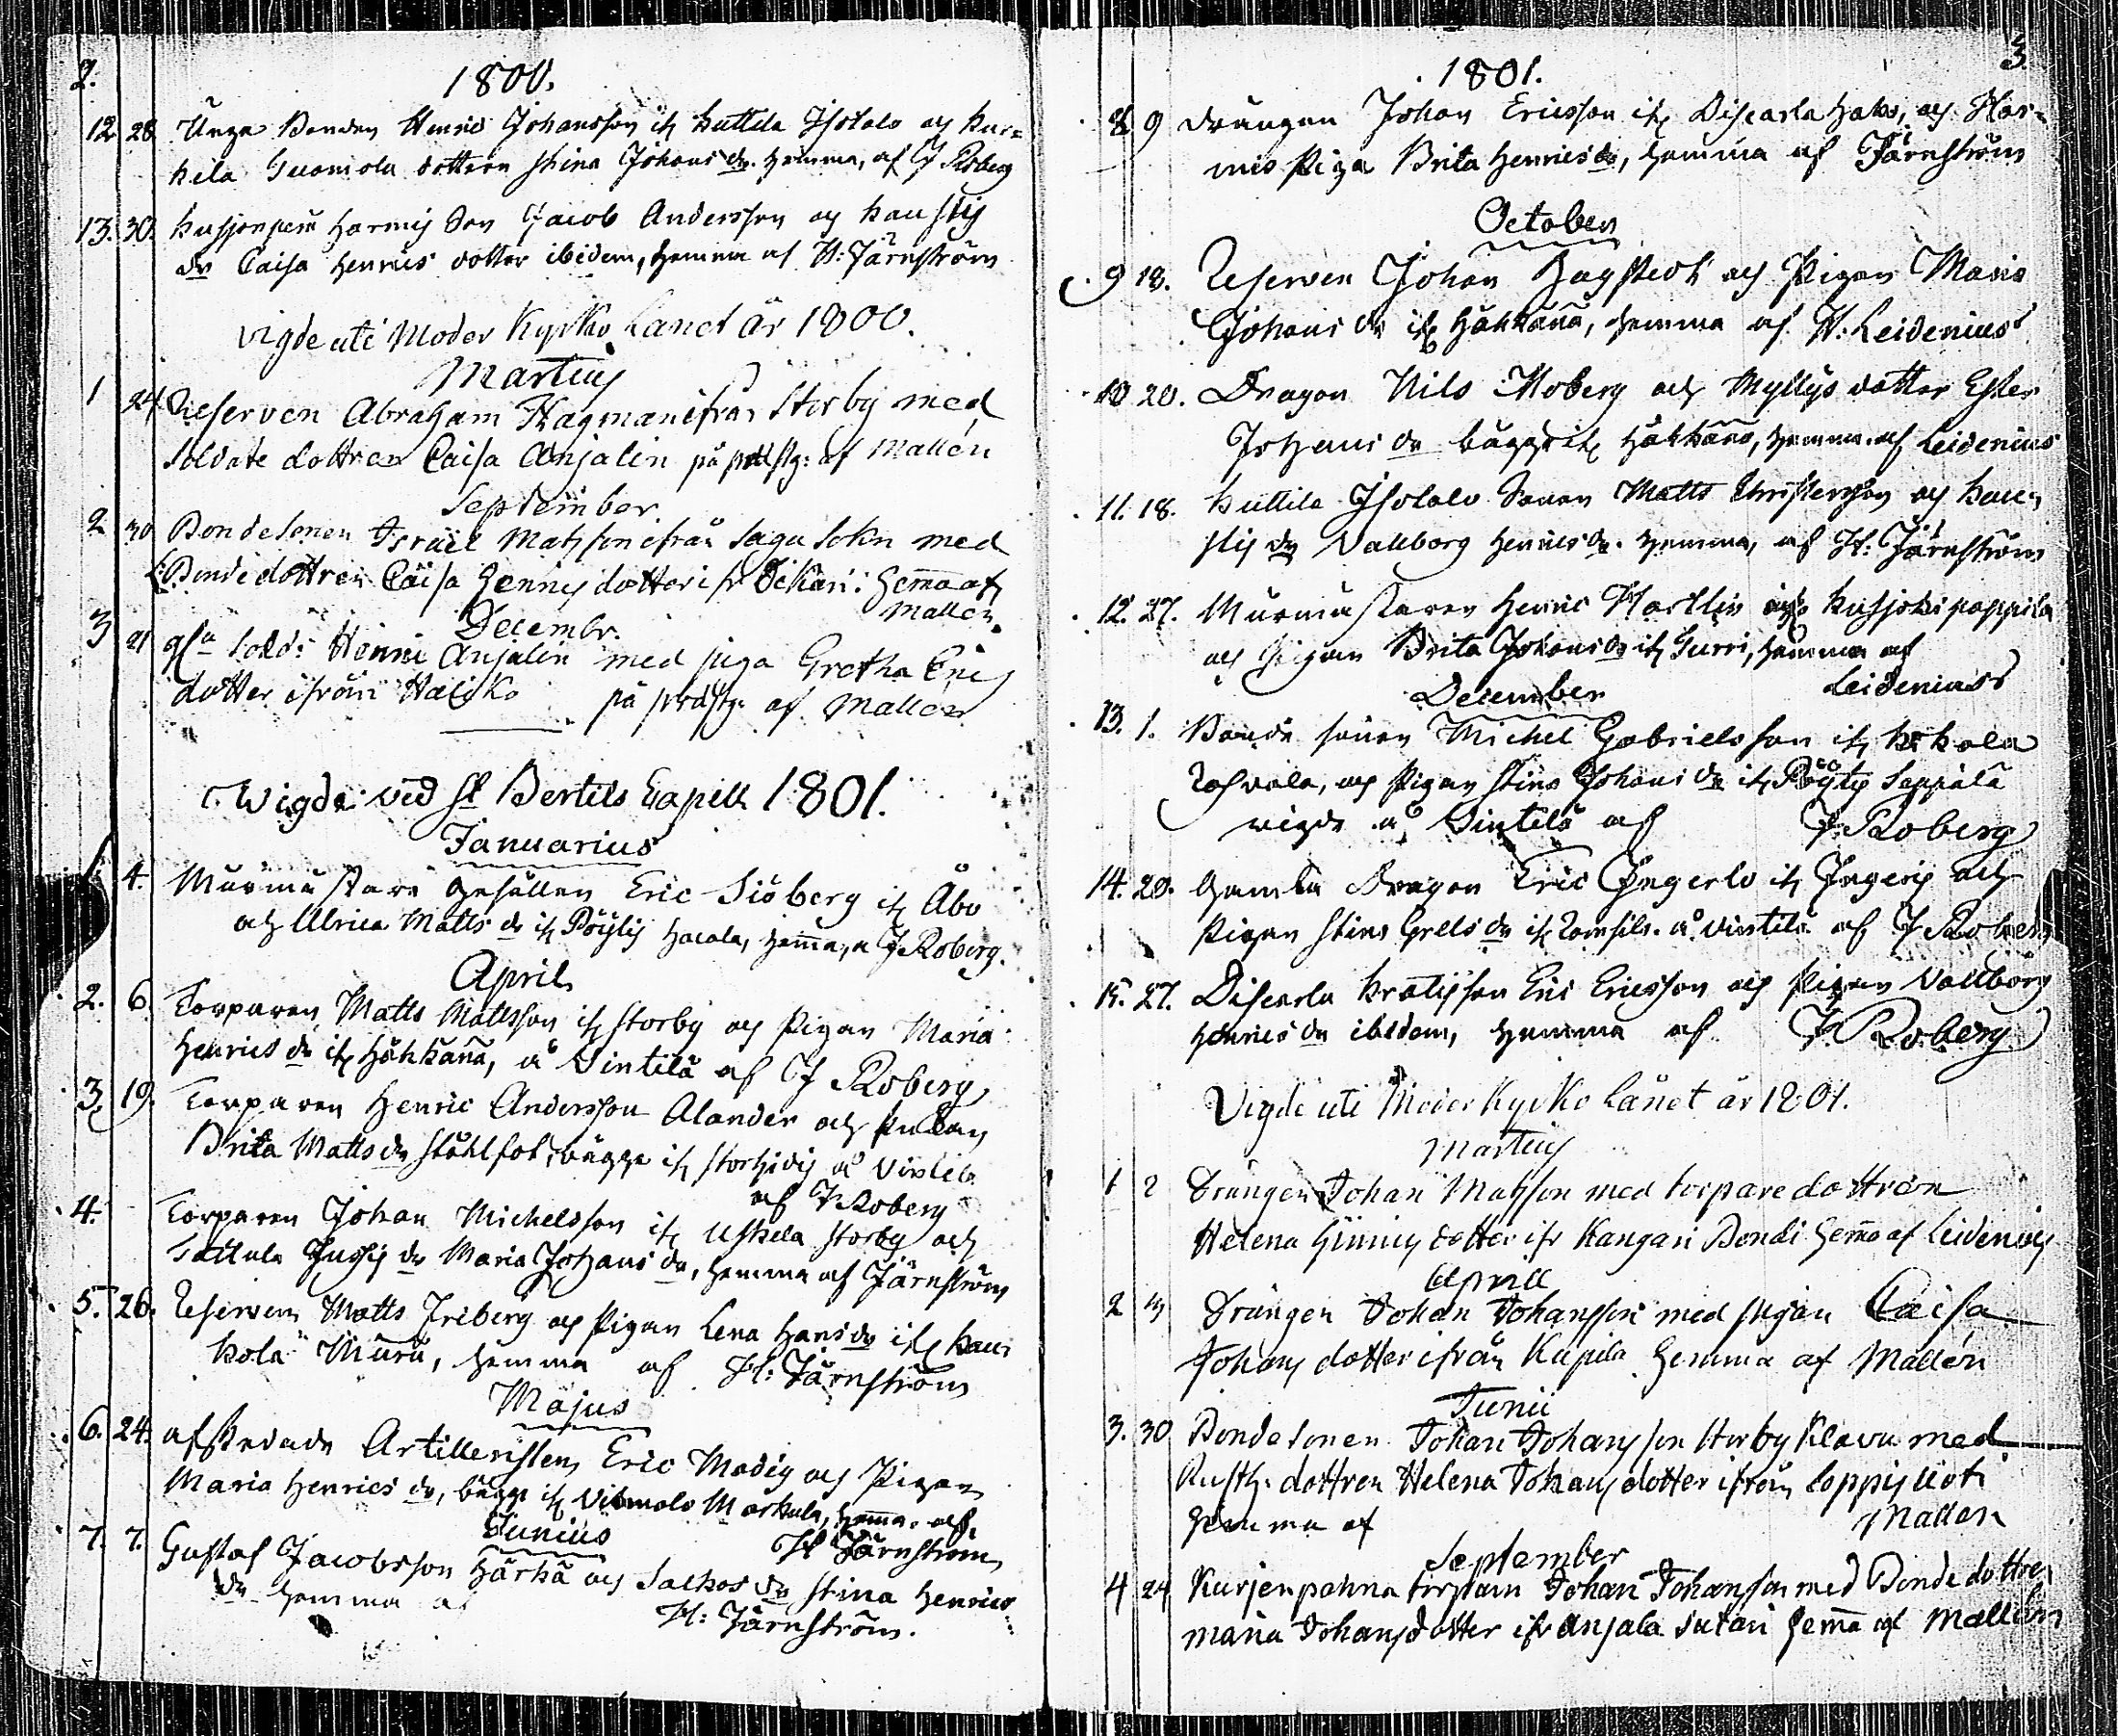 2.
1800.
12 28 Unga Bonden Henric Johansson ifr Kuttila Isotalo och Kur-
kila Suomola dottern Stina Johans dr. hemma, af J Roberg
13. 30. Kusjonperä Harmis Son Jacob Andersson och Haustis
dr Caisa Henrics dotter ibidem, hemma af H: Järnström
Vigde uti Moder Kyrko Länet år 1800.
Martius
1 24 Reserven Abraham Hagman ifrån Storby med
Soldate dottren Caisa Anjalin på prästg: af Mallén
September
2 30 Bonde Sonen Israël Matsson ifrån Sagu Sokn med
Bonde dottren Caisa Hennes dotter ifr : hemma af
Mallén.
Decembr.
3 21 Sold: Henric Anjalin med piga Gretha Erics
dotter ifrån Haliko på prästg. af Mallén
Wigde ved St Bertils Capell 1801.
Januarius
1. 4. Murmästare Gesällen Eric Siöberg ifr Åbo
och Ulrica Matts dr ifr Pöytis Hacala, hemma, a J Roberg.
April
2. 6. Torparen Matts Mattsson ifr Storby och Pigan Maria
Henrics dr ifr Häkkänä, å Vintilä af J Roberg
3. 19. Torparen Henric Andersson Alander och Enkan
Brita Matts dr Ståhlfot, bägge ifr å Vintilä
af J Roberg
4. Torparen Johan Michelsson ifr Uskela Storby och
Jussis dr Maria Johans dr, hemma af Järnström
5. 26. Reserven Matts Friberg och Pigan Lena Hans dr ifr Kau-
kola Muru, hemma af H: Järnström
Majus
6. 24. afskedade Artilleristen Eric Modig och Pigan
Maria Henrics dr, bägge ifr Vitmalo Markula, hemma. af.
H Järnström
Junius
7. 7. Gustaf Jacobsson Härkä och dr Stina Henrics
dr hemma af H: Järnström.
3.
1801.
8 9 Drängen Johan Ericsson ifr Discarla Hako, och Har-
mis Piga Brita Henrics dr, hemma af Järnström
October
9 18. Reserven Johan Hagstedt och Pigan Maria
Johans dr ifr Häkkänä, hemma af H: Leidenius
10 20. Dragon Nils Moberg och Myllys dotter Ester
Johans dr bägge ifr Häkkänä, hemma af Leidenius
11. 18. Kuttila Isotalo Sonen Matts Christersson och Hau-
stis dr Vallborg Henrics dr. hemma, af H: Järnström
12. 27. Murmästaren Henric Hartlin ifr Kusjoki pappila
och Pigan Brita Johans dr ifr Gurri, hemma af
Leidenius
December
13. 1. Bonde sonen Michel Gabrielsson ifr Kokola
och Pigan Stina Johans dr ifr Pöytis Seppälä
vigde å Vintilä af J. Roberg
14. 20. Gamla Dragon Eric Ingerlo ifr Ingeris och
Pigan Stina Grels dr ifr å Vintilä af J Roberg
15. 27. Discarla Kratisson Eric Ericsson och Pigan Vallborg
Henrics dr ibidem, hemma af J. Roberg
Vigde uti Moder Kyrko Länet år 1801.
Martius
1 2 Drängen Johan Matsson med torpare dottren
Helena Hinrics dotter ifr Kangari Bondi hemma af Leidenius
Aprill
2 Drängen Johan Johansson med pigan Caisa
Johans dotter ifrån Kapila hemma af Mallén
Junii
3. 30 Bonde Sonen Johan Johansson Storby Klavu med
Rusth: dottren Helena Johans dotter ifrån Loppis Uoti
hemma af Mallén
September
4 24 Kurjenpahna torparn Johan Johansson med Bonde dottren
Maria Johans dotter ifr Anjala Sutari hemma af Mallén